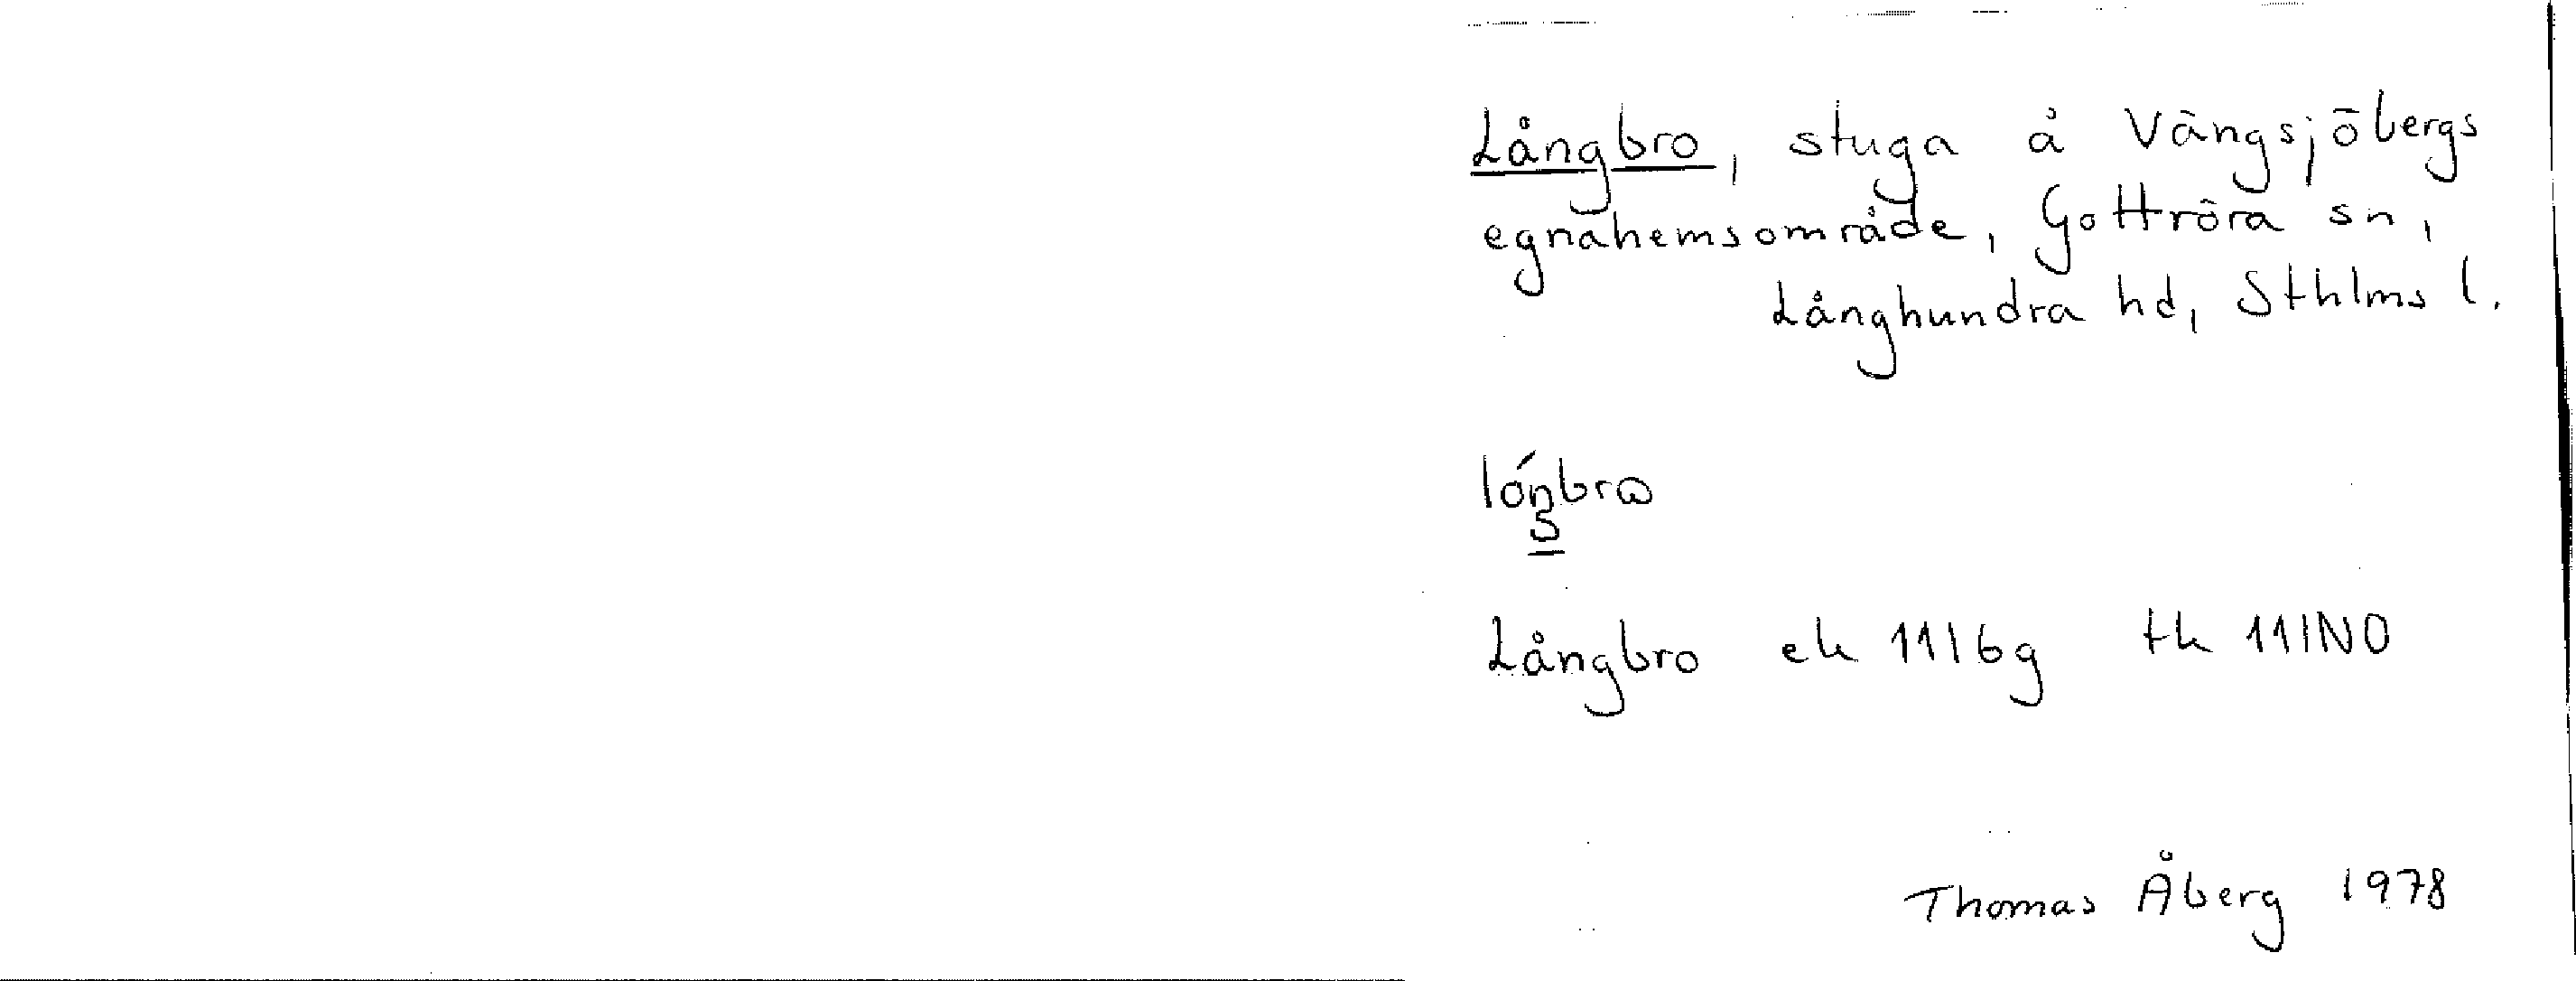 Långbro, stuga å Vängsjöbergs
egnahemsområde, Gottröra sn,
Långhundra hd, Sthlms l.
Långbro ek 11I6g tk 11INO
Thomas Åberg 1978